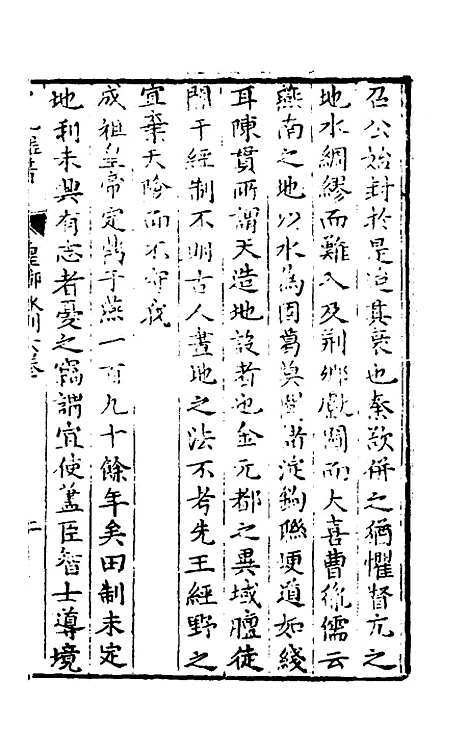 召公始封於是迨其衰也秦欲併之猶懼督亢之
地水綢繆而難入及荊卿獻圖而大喜曹彪儒云
燕南之地以水為固葛莫間諸淀鉤聯埂道如綫
耳陳貫所謂天造地設者也金元都之異域膻徒
闇于經制不明古人畫地之法不若先王經野之
宜棄天險而不守我
成祖皇帝定鼎于燕一百九十餘年矣田制未定
地利未興有志者憂之竊謂宜使藎臣智士導境